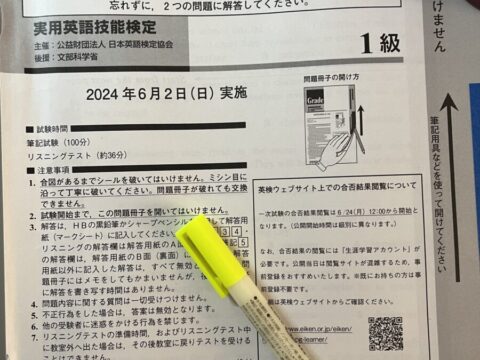 忘れずに、2つの問題に解答してください。
実用英語技能検定
主催：公益財団法人 日本英語検定協会
後援：文部科学省
1級
2024年6月2日(日) 実施
問題冊子の開け方
Grade
■試験時間
筆記試験（100分）
リスニングテスト（約36分）
■注意事項
1. 合図があるまでシールを破いてはいけません。ミシン目
に沿って丁寧に破いてください。問題冊子が破れても交換
できません。
2. 試験開始まで、この問題冊子を開いてはいけません。
3. 解答は、HBの黒鉛筆かシャープペンシル
用紙（マークシート）に記入してくだ
リスニングの解答欄は解答用紙のA面
の解答欄は、解答用紙のB面（裏面）に
用紙以外に記入した解答は、すべて無効と
題冊子にはメモをしてもかまいませんが、後
に解答を書き写す時間はありません。
4. 問題内容に関する質問は一切受けつけません。
5. 不正行為をした場合は、答案は無効となります。
6. 他の受験者に迷惑をかける行為を禁じます。
7. リスニングテストの準備時間、およびリスニングテスト中
に教室外へ出た場合は、その後教室に戻りテストを受ける
ことはできません。
英検ウェブサイト上での合否結果閲覧について
一次試験の合否結果閲覧は 6/24(月) 12:00から開始と
なります。（公開開始時間は級別に異なります）
なお、合否結果の閲覧には「生涯学習アカウント」が
必要です。公開当日は閲覧サイトが混雑するため、事
前登録をおすすめいたします。※既にお持ちの方は事
前登録不要です。
細は英検ウェブサイトからご確認ください。
www.eiken.or.jp/eiken/
けません
筆記用具などを使って開けてください